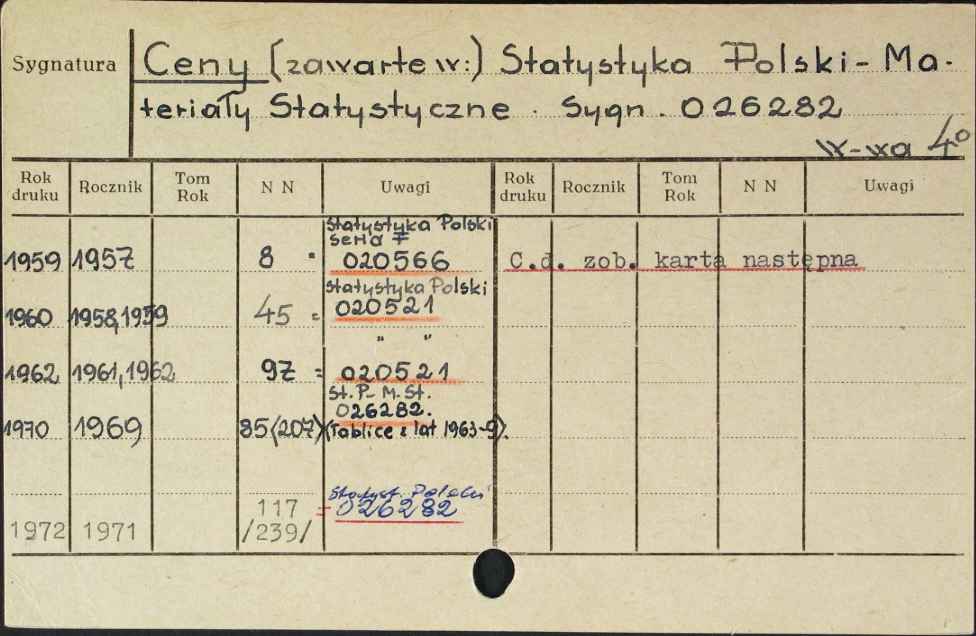 Sygnatura
Ceny (zawarte w:) Statystyka Polski - Ma-
teriały Statystyczne. Sygn. 026282
W-wa 4°
Rok druku Rocznik Tom Rok N N Uwagi Rok druku Rocznik Tom Rok N N Uwagi
Statystyka Polski
seria F
1959 1957 8 = 020566 C.d. zob. karta następna
Statystyka Polski
1960 1958,1959 45 = 020521
" "
1962 1961,1962 97 = 020521
St. P- M. St.
026282.
1970 1969 85(207) (Tablice z lat 1963-9).
Statyst. Polski
117 = 026282
1972 1971 /239/